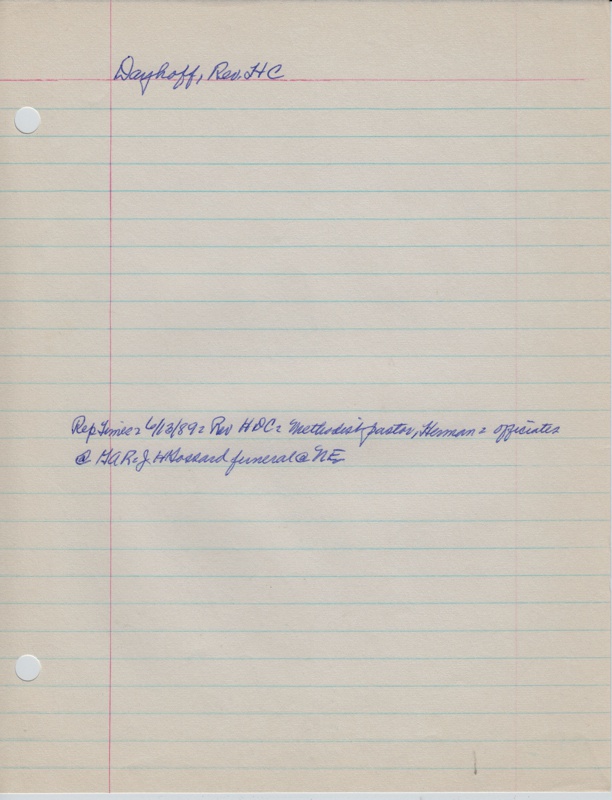 Dayhoff, Rev. HC
Rep Times = 6/13/89 = Rev HDC = Methodist pastor, Herman = officiates
@ GAR = J. H Gossard funeral @ NE